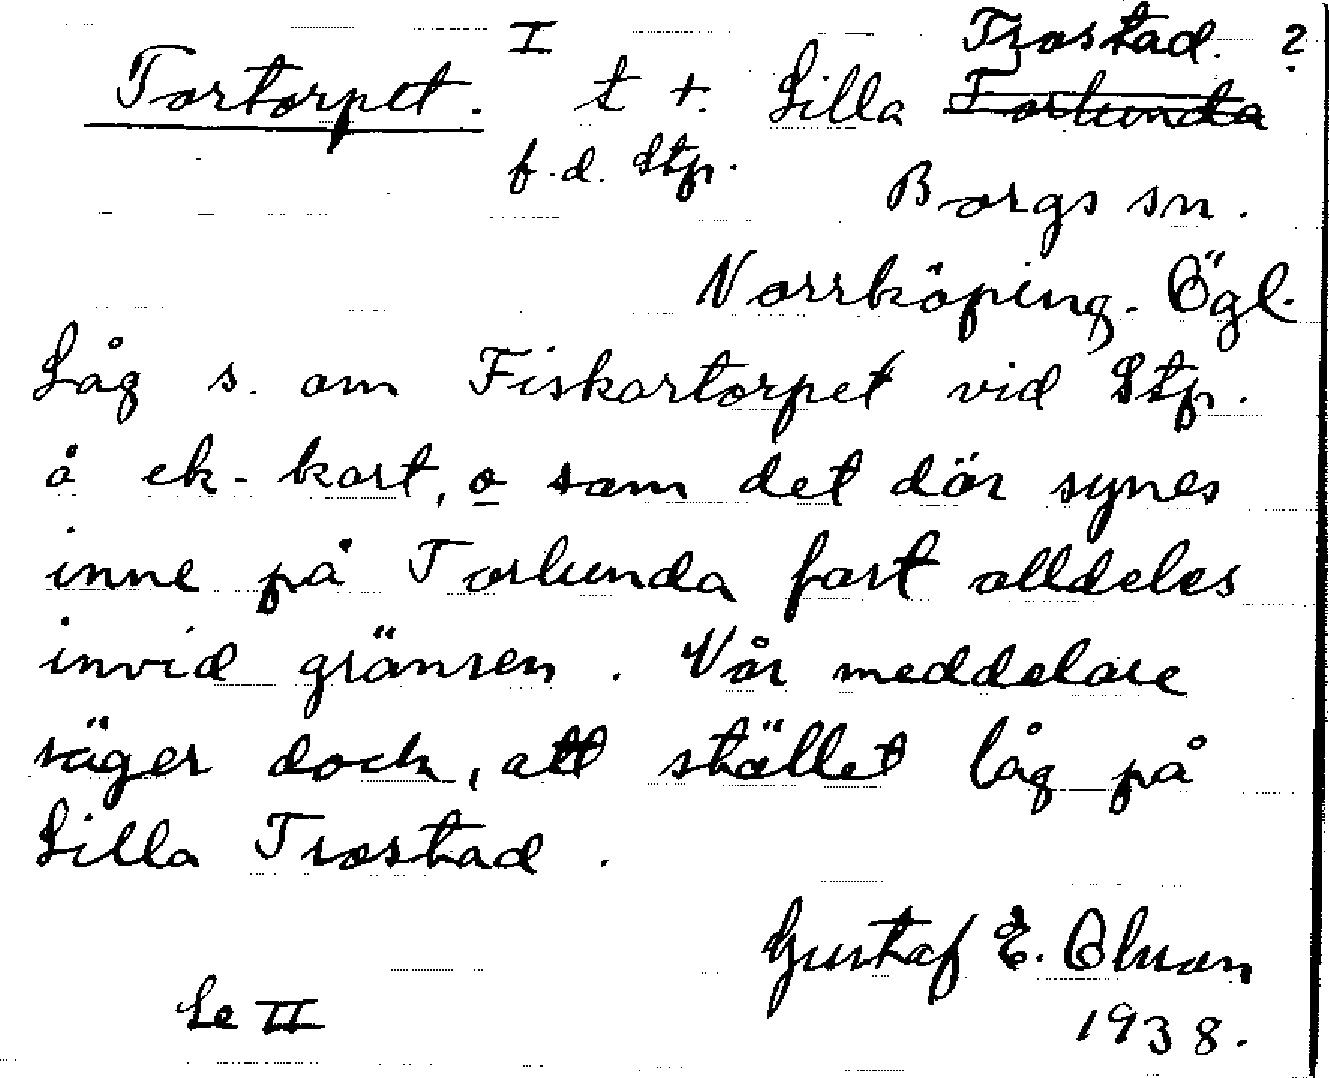 Tortorpet. I t + Lilla Trostad. ?
~~Torlunda~~
f.d. Stp.
Borgs sn.
Norrköping. Ögl.
Låg s. om Fiskartorpet vid Stp.
å ek-kart, o som det där synes
inne på Torlunda fast alldeles
invid gränsen. Vår meddelare
säger dock, att stället låg på
Lilla Trostad.
Gustaf E. Olsson
Se II
1938.